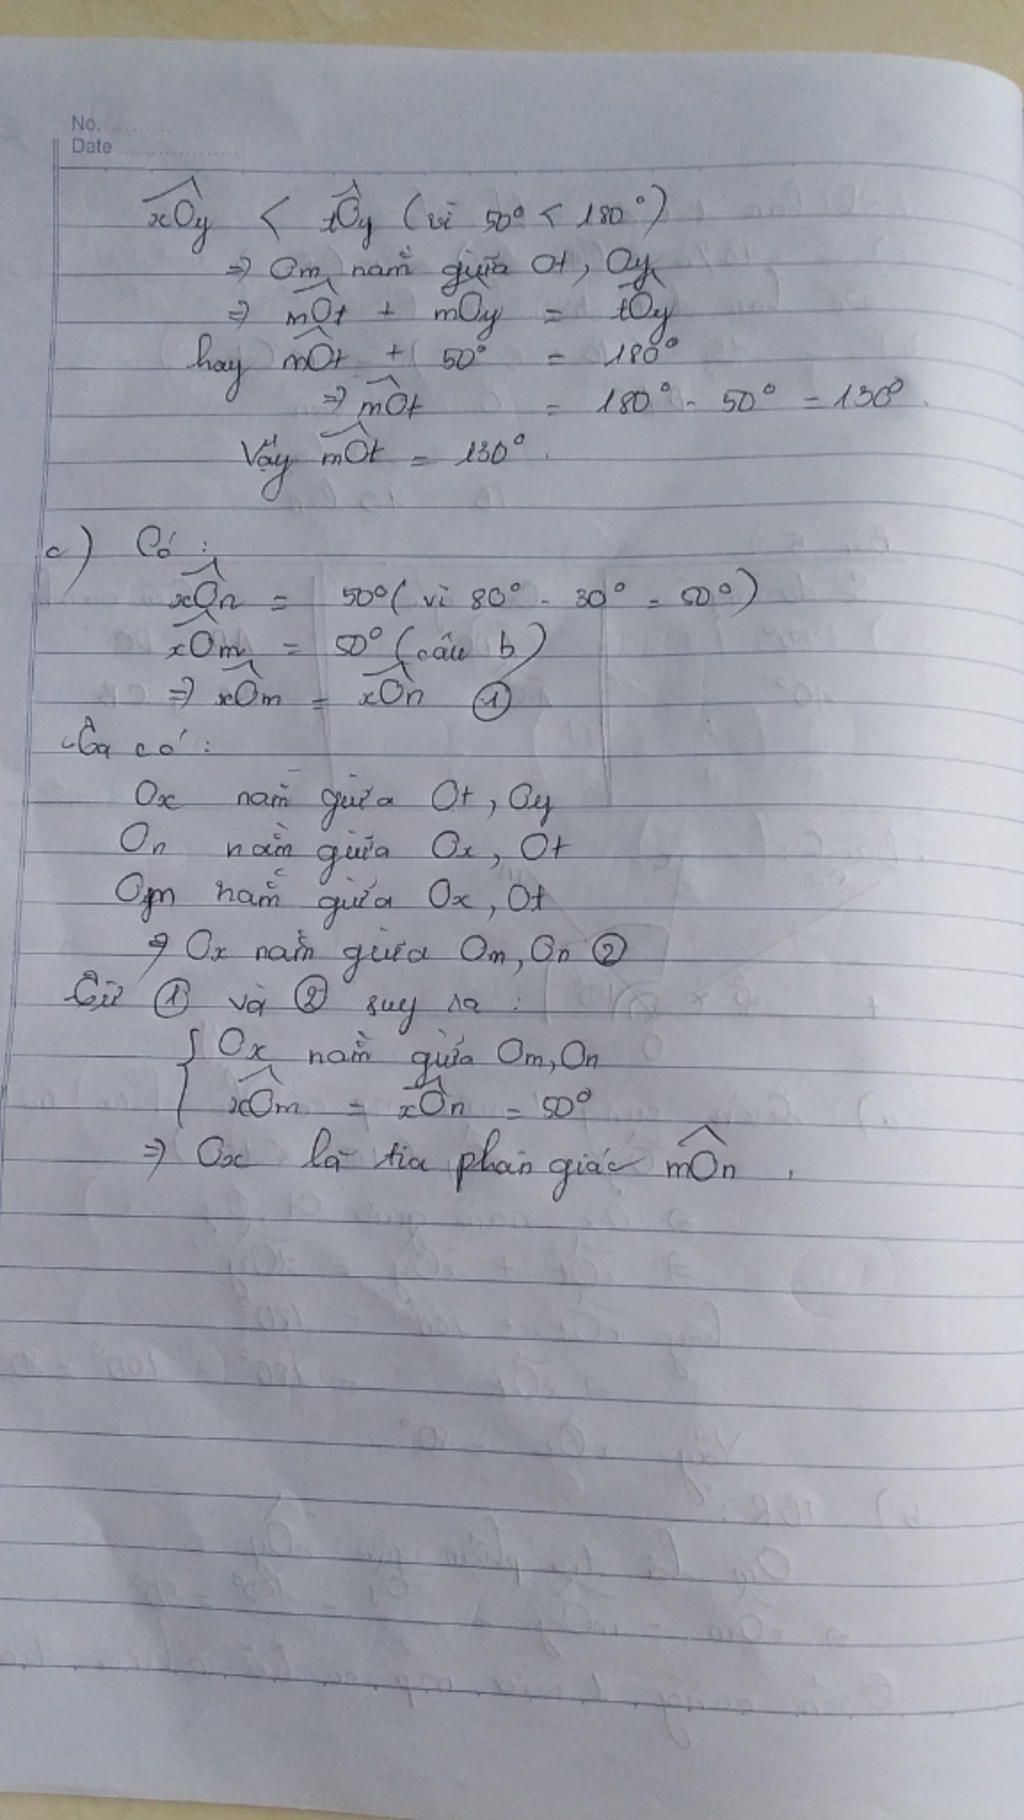 No.
Date
xOy < tOy (vì 50° < 180°)
⇒ Om nằm giữa Ot, Oy
⇒ mOt + mOy = tOy
hay mOt + 50° = 180°
⇒ mOt = 180° - 50° = 130°.
Vậy mOt = 130°.
c) Có:
xOn = 50° (vì 80° - 30° = 50°)
xOm = 50° (câu b)
⇒ xOm = xOn ①
Ta có:
Ox nằm giữa Ot, Oy
On nằm giữa Ox, Ot
Om nằm giữa Ox, Ot
⇒ Ox nằm giữa Om, On ②
Từ ① và ② suy ra:
{ Ox nằm giữa Om, On
xOm = xOn = 50°
⇒ Ox là tia phân giác mOn.